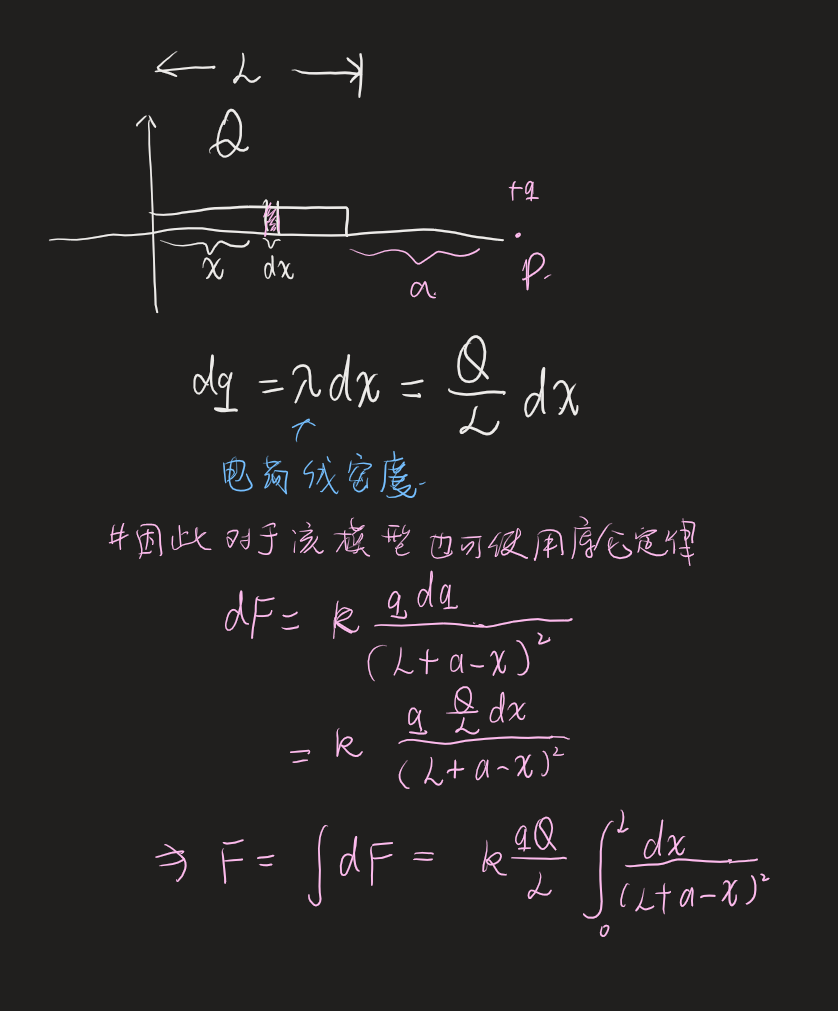 ← L →
Q
+q
x dx
a
P
dq = λdx = Q/L dx
↑
电荷线密度
#因此对于该模型也可使用库仑定律
dF = k q dq/(L+a-x)²
= k q Q/L dx/(L+a-x)²
⇒ F = ∫dF = k qQ/L ∫₀ᴸ dx/(L+a-x)²